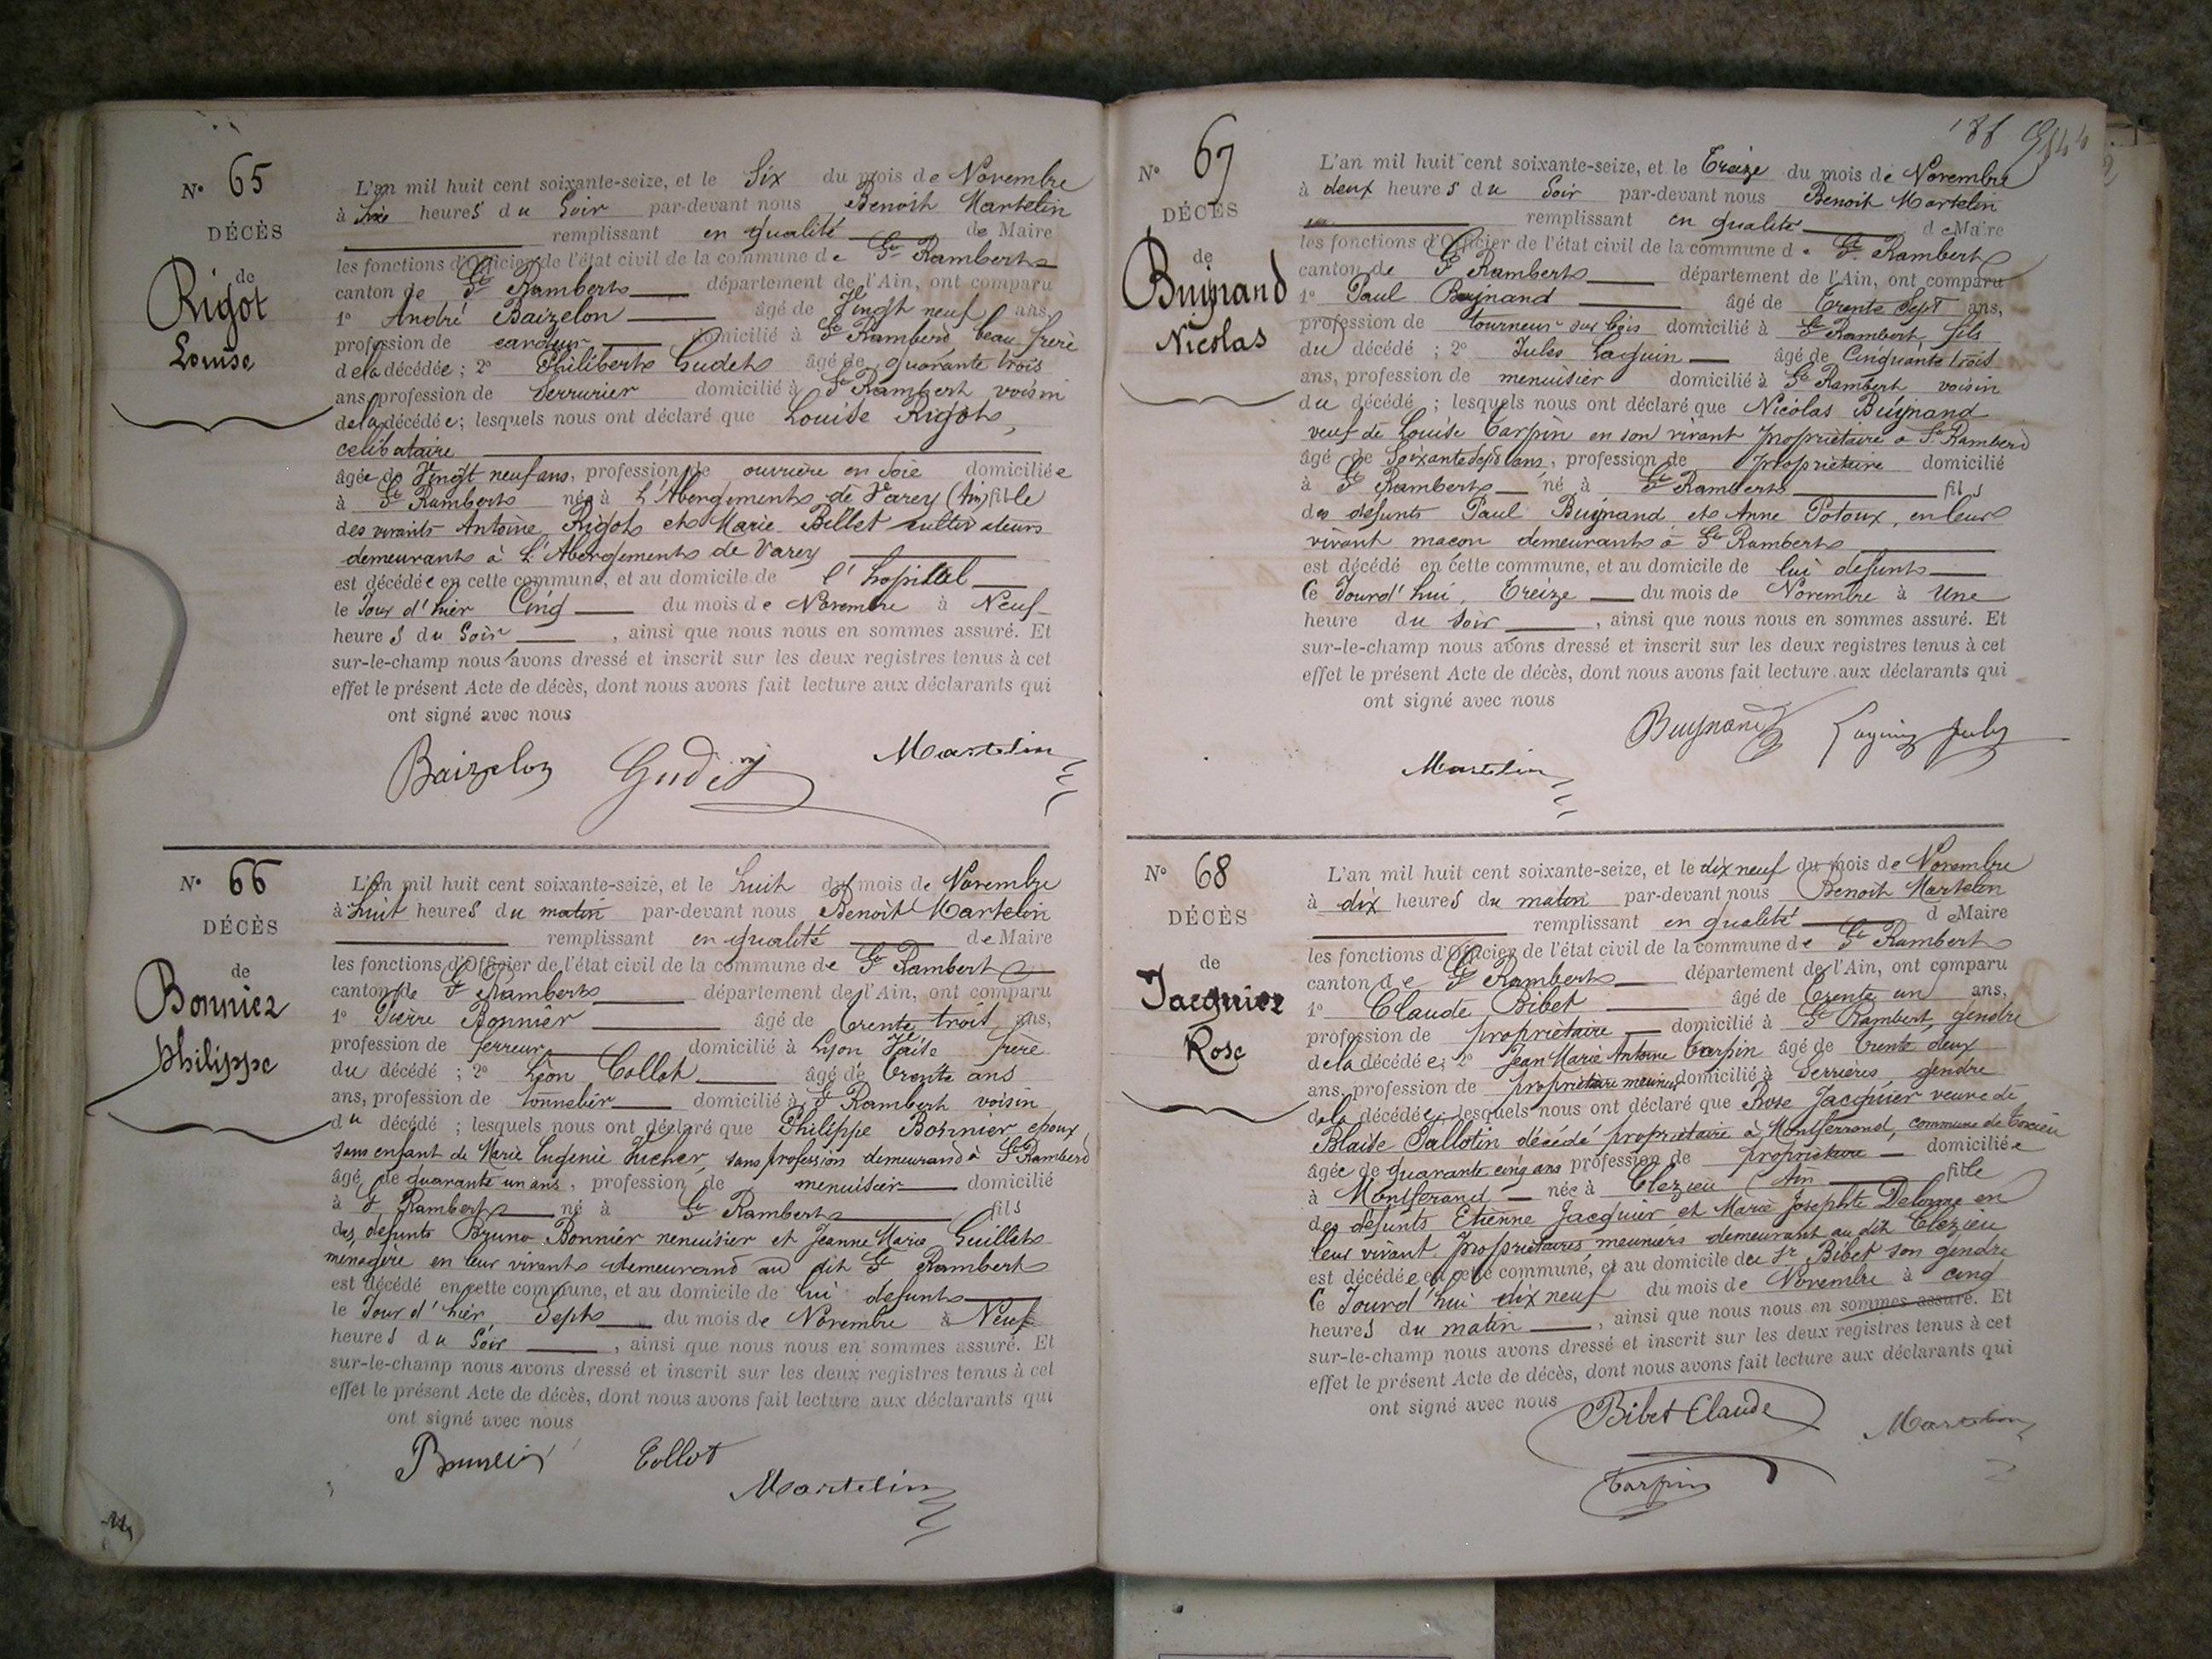 N° 65
DÉCÈS
de
Rigot
Louise
L'an mil huit cent soixante-seize, et le Six du mois de Novembre
à Six heures du Soir par-devant nous Benoit Martelin
remplissant en qualité de Maire
les fonctions d'Officier de l'état civil de la commune de St Rambert
canton de St Rambert département de l'Ain, ont comparu
1° André Baizelon âgé de Vingt neuf ans,
profession de domicilié à St Rambert beau frère
dela décédée ; 2° Philibert Gudet âgé de quarante trois
ans, profession de Serrurier domicilié à St Rambert voisin
dela décédée ; lesquels nous ont déclaré que Louise Rigot,
celibataire
âgée de Vingt neuf ans, profession de ouvrière en Soie domiciliée
à St Rambert née à L'Abergement de Varey (Ain) fille
des vivants Antoine Rigot et Marie Billet cultivateurs
demeurant à L'Abergement de Varey
est décédée en cette commune, et au domicile de l'hopital
le Jour d'hier Cinq du mois de Novembre à Neuf
heures du Soir , ainsi que nous nous en sommes assuré. Et
sur-le-champ nous avons dressé et inscrit sur les deux registres tenus à cet
effet le présent Acte de décès, dont nous avons fait lecture aux déclarants qui
ont signé avec nous
Baizelon Gudet Martelin
N° 66
DÉCÈS
de
Bonnier
Philippe
L'an mil huit cent soixante-seize, et le huit du mois de Novembre
à huit heures du matin par-devant nous Benoit Martelin
remplissant en qualité de Maire
les fonctions d'Officier de l'état civil de la commune de St Rambert
canton de St Rambert département de l'Ain, ont comparu
1° Pierre Bonnier âgé de trente trois ans,
profession de ferreur domicilié à Lyon Vaise frère
du décédé ; 2° Léon Collot âgé de trente ans
ans, profession de tonnelier domicilié à St Rambert voisin
du décédé ; lesquels nous ont déclaré que Philippe Bonnier epoux
sans enfant de Marie Eugenie Zucher, sans profession demeurand à St Rambert
âgé de quarante un ans, profession de menuisier domicilié
à St Rambert né à St Rambert fils
des défunts Bruno Bonnier menuisier et Jeanne Marie Guillet
menagère en leur vivant demeurand au dit St Rambert
est décédé en cette commune, et au domicile de lui defunt
le Jour d'hier, Sept du mois de Novembre à Neuf
heures du Soir , ainsi que nous nous en sommes assuré. Et
sur-le-champ nous avons dressé et inscrit sur les deux registres tenus à cet
effet le présent Acte de décès, dont nous avons fait lecture aux déclarants qui
ont signé avec nous
Bonnier Collot
Martelin
N° 67
DÉCÈS
de
Buignand
Nicolas
L'an mil huit cent soixante-seize, et le Treize du mois de Novembre
à deux heures du Soir par-devant nous Benoit Martelin
remplissant en qualité de Maire
les fonctions d'Officier de l'état civil de la commune de St Rambert
canton de St Rambert département de l'Ain, ont comparu
1° Paul Buignand âgé de Trente Sept ans,
profession de tourneur sur bois domicilié à St Rambert, fils
du décédé ; 2° Jules Laguin âgé de Cinquante trois
ans, profession de menuisier domicilié à St Rambert voisin
du décédé ; lesquels nous ont déclaré que Nicolas Buignand
veuf de Louise Carpin en son vivant propriétaire à St Rambert
âgé de Soixante dix ans, profession de propriétaire domicilié
à St Rambert né à St Rambert fils
des défunts Paul Buignand et Anne Potoux, en leur
vivant maçon demeurant à St Rambert
est décédé en cette commune, et au domicile de lui défunt
Ce Jourd'hui, Treize du mois de Novembre à Une
heure du soir , ainsi que nous nous en sommes assuré. Et
sur-le-champ nous avons dressé et inscrit sur les deux registres tenus à cet
effet le présent Acte de décès, dont nous avons fait lecture aux déclarants qui
ont signé avec nous
Buignand
Martelin
N° 68
DÉCÈS
de
Jacquier
Rose
L'an mil huit cent soixante-seize, et le dix neuf du mois de Novembre
à dix heures du matin par-devant nous Benoit Martelin
remplissant en qualité de Maire
les fonctions d'Officier de l'état civil de la commune de St Rambert
canton de St Rambert département de l'Ain, ont comparu
1° Claude Bibet âgé de trente un ans,
profession de propriétaire domicilié à St Rambert, gendre
dela décédée ; 2° Jean Marie Antoine Carpin âgé de trente deux
ans, profession de propriétaire meunier domicilié à Serrières gendre
dela décédée ; lesquels nous ont déclaré que Rose Jacquier veuve de
Blaise Tallotin décédé propriétaire à Montferrand, commune de Torcieu
âgée de quarante cinq ans profession de propriétaire domiciliée
à Montferand née à Clezieu Ain fille
des défunts Etienne Jacquier et Marie Josephte Delorme en
leur vivant propriétaires meuniers demeurant au dit Clezieu
est décédée en cette commune, et au domicile du Sr Bibet son gendre
Ce Jourd'hui dix neuf du mois de Novembre à cinq
heures du matin , ainsi que nous nous en sommes assuré. Et
sur-le-champ nous avons dressé et inscrit sur les deux registres tenus à cet
effet le présent Acte de décès, dont nous avons fait lecture aux déclarants qui
ont signé avec nous Bibet Claude Martelin
Carpin